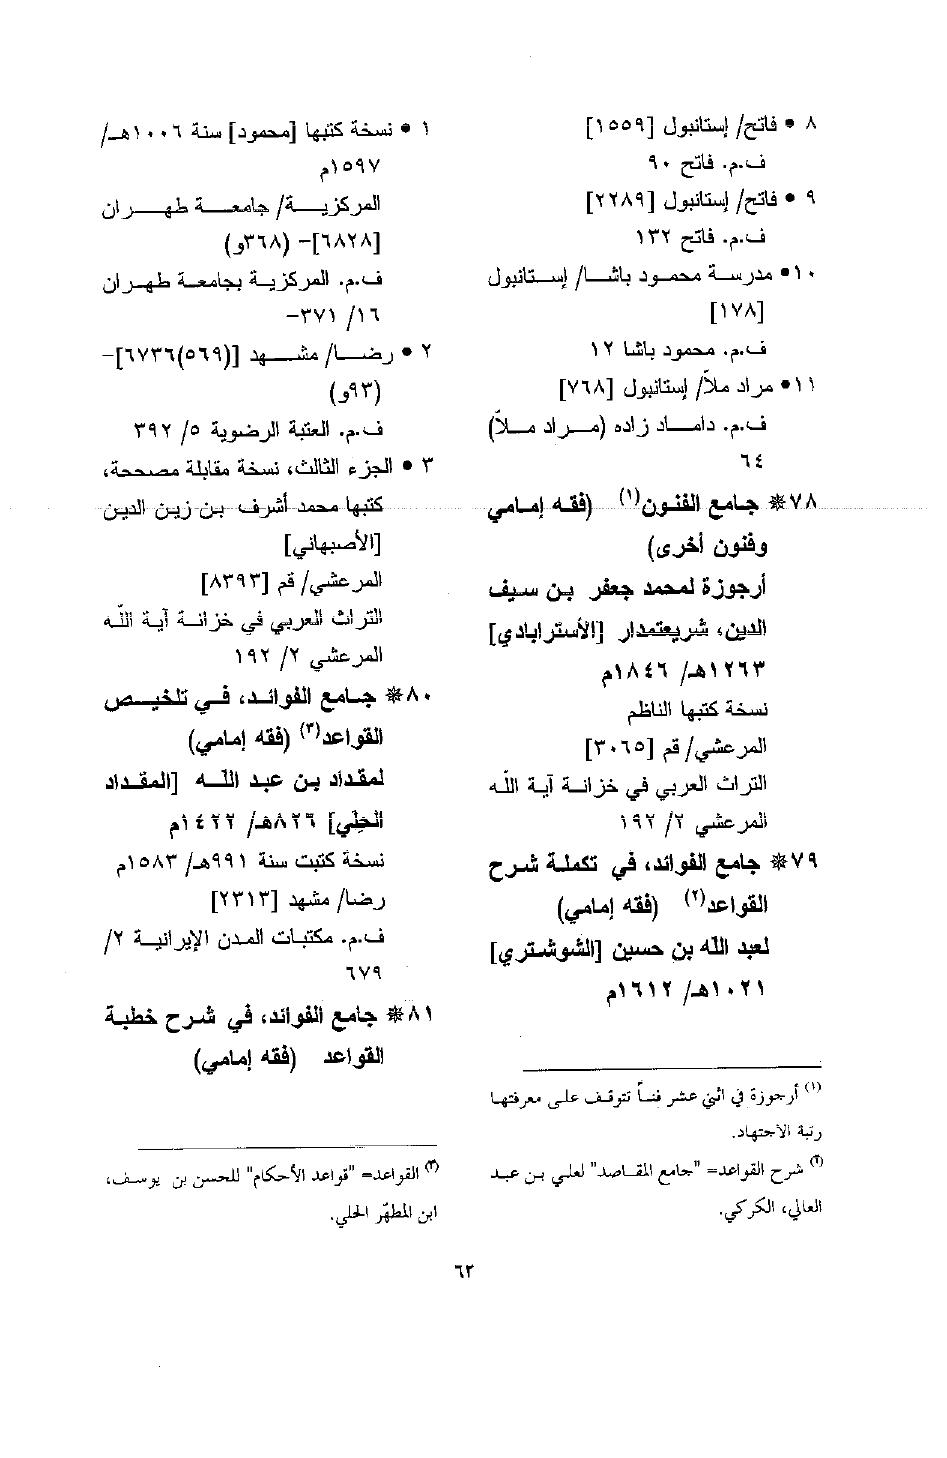 ٨ • فاتح/ إستانبول [١٥٥٩]
ف.م. فاتح ٩٠
٩ • فاتح/ إستانبول [٢٢٨٩]
ف.م. فاتح ١٣٢
١٠• مدرسة محمود باشا/ إستانبول
[١٧٨]
ف.م. محمود باشا ١٢
١١• مراد ملاّ/ إستانبول [٧٦٨]
ف.م. داماد زاده (مراد ملاّ)
٦٤
٧٨❋ جامع الفنون(١) (فقه إمامي
وفنون أخرى)
أرجوزة لمحمد جعفر بن سيف
الدين، شريعتمدار [الأسترابادي]
١٢٦٣هـ/ ١٨٤٦م
نسخة كتبها الناظم
المرعشي/ قم [٣٠٦٥]
التراث العربي في خزانة آية اللّه
المرعشي ٢/ ١٩٢
٧٩❋ جامع الفوائد، في تكملة شرح
القواعد(٢) (فقه إمامي)
لعبد الله بن حسين [الشوشتري]
١٠٢١هـ/ ١٦١٢م
(١) أرجوزة في اثني عشر فنـاً تتوقف على معرفتها
رتبة الاجتهاد.
(٢) شرح القواعد= "جامع المقاصد" لعلي بن عبد
العالي، الكركي.
١ • نسخة كتبها [محمود] سنة ١٠٠٦هـ/
١٥٩٧م
المركزية/ جامعة طهران
[٦٨٢٨]– (٣٦٨و)
ف.م. المركزية بجامعة طهران
١٦/ ٣٧١–
٢ • رضا/ مشهد [(٥٦٩)٦٧٣٦]–
(٩٣و)
ف.م. العتبة الرضوية ٥/ ٣٩٢
٣ • الجزء الثالث، نسخة مقابلة مصححة،
كتبها محمد أشرف بن زين الدين
[الأصبهاني]
المرعشي/ قم [٨٣٩٣]
التراث العربي في خزانة آية اللّه
المرعشي ٢/ ١٩٢
٨٠❋ جامع الفوائد، في تلخيص
القواعد(٣) (فقه إمامي)
لمقداد بن عبد الله [المقداد
الحلّي] ٨٢٦هـ/ ١٤٢٢م
نسخة كتبت سنة ٩٩١هـ/ ١٥٨٣م
رضا/ مشهد [٢٣١٣]
ف.م. مكتبات المدن الإيرانية ٢/
٦٧٩
٨١❋ جامع الفوائد، في شرح خطبة
القواعد (فقه إمامي)
(٣) القواعد= "قواعد الأحكام" للحسن بن يوسف،
ابن المطهّر الحلي.
٦٢